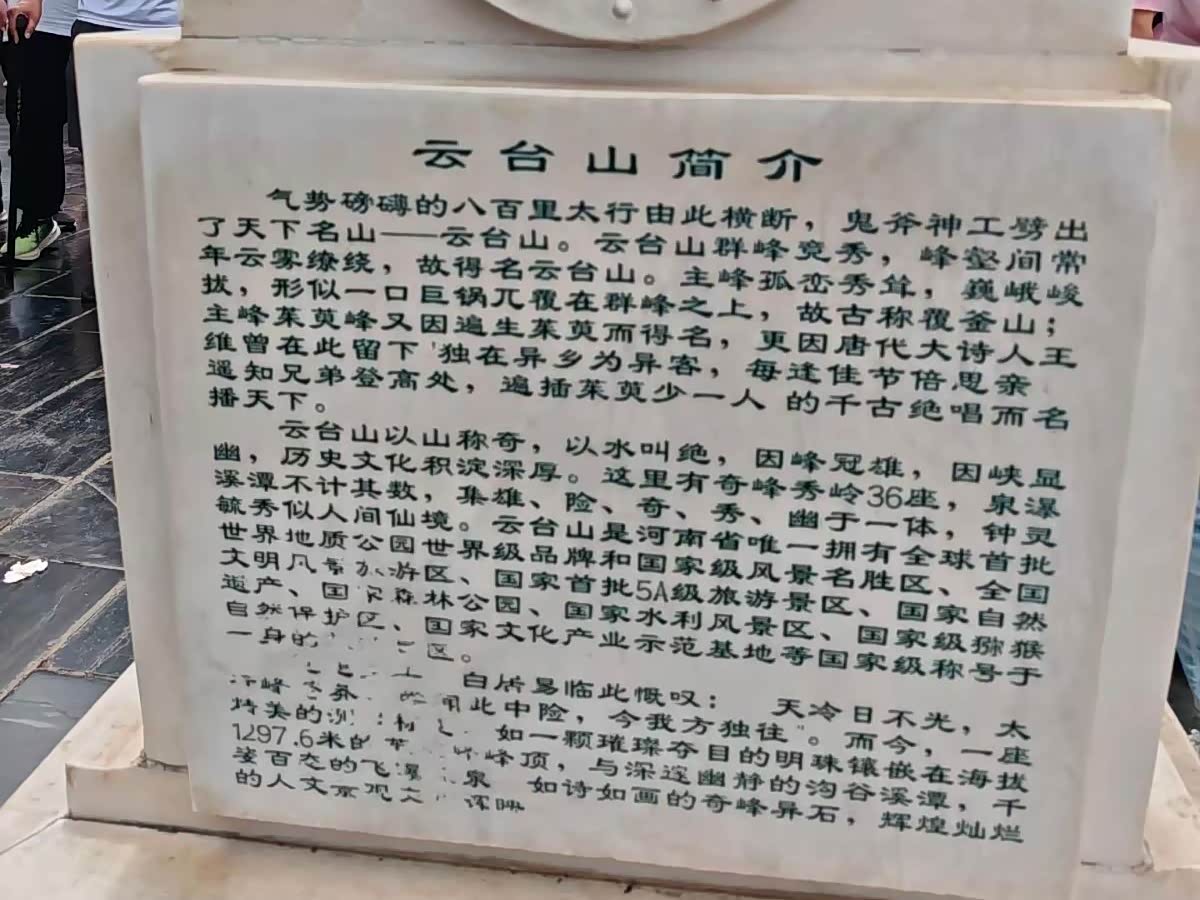 云台山简介
气势磅礴的八百里太行由此横断，鬼斧神工劈出
了天下名山——云台山。云台山群峰竞秀，峰壑间常
年云雾缭绕，故得名云台山。主峰孤峦秀耸，巍峨峻
拔，形似一口巨锅兀覆在群峰之上，故古称覆釜山；
主峰茱萸峰又因遍生茱萸而得名，更因唐代大诗人王
维曾在此留下"独在异乡为异客，每逢佳节倍思亲
遥知兄弟登高处，遍插茱萸少一人 的千古绝唱而名
播天下。
云台山以山称奇，以水叫绝，因峰冠雄，因峡显
幽，历史文化积淀深厚。这里有奇峰秀岭36座，泉瀑
溪潭不计其数，集雄、险、奇、秀、幽于一体，钟灵
毓秀似人间仙境。云台山是河南省唯一拥有全球首批
世界地质公园世界级品牌和国家级风景名胜区、全国
文明风景旅游区、国家首批5A级旅游景区、国家自然
遗产、国家森林公园、国家水利风景区、国家级猕猴
自然保护区、国家文化产业示范基地等国家级称号于
一身的 区。
白居易临此慨叹： 天冷日不光，太
行峰 此中险，今我方独往"。而今，一座
特美的 如一颗璀璨夺目的明珠镶嵌在海拔
1297.6米的 峰顶，与深邃幽静的沟谷溪潭，千
姿百态的飞瀑 泉 如诗如画的奇峰异石，辉煌灿烂
的人文景观